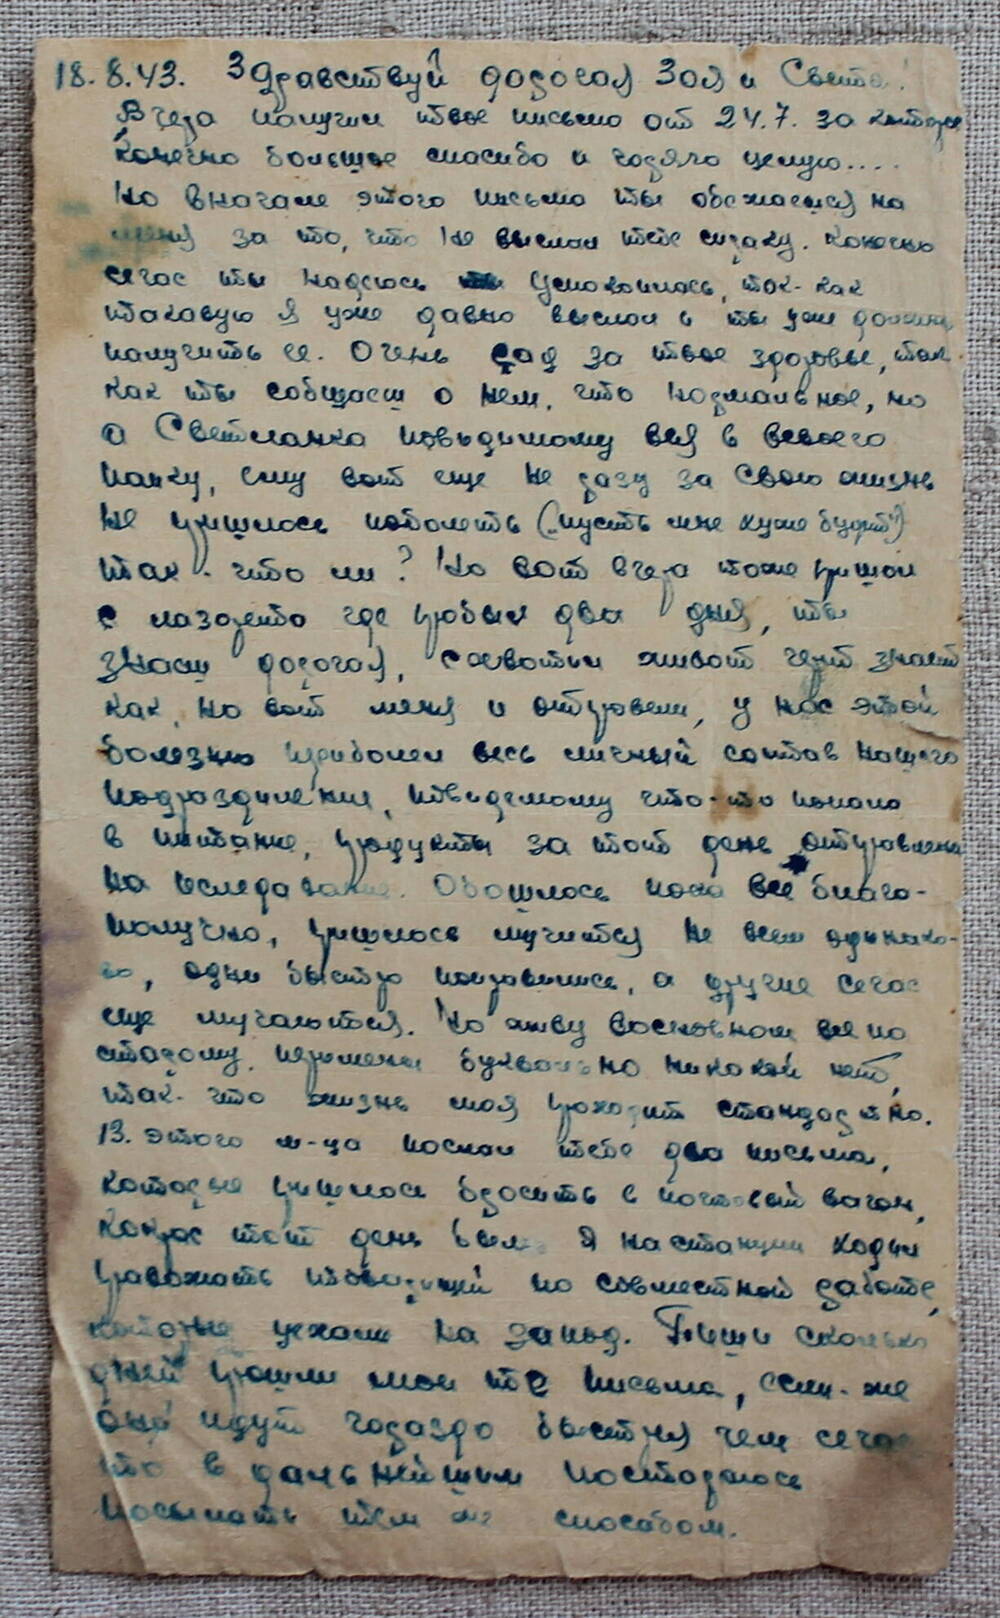 18.8.43. Здравствуй дорогая Зоя и Света!
Вчера получил твое письмо от 24.7. за которое
конечно большое спасибо и горячо целую....
Но вначале этого письма ты обежаешся на
меня за то, что не выслал тебе справку. Конечно
сечас ты надеюсь успокоилась, так-как
таковую я уже давно выслал и ты уже должна
получить ее. Очень рад за твое здоровье, так
как ты собщаеш о нем, что нормальное, но
а Светланка повидимому вся в всвоего
папку, ему вот еще не разу за свою жизнь
не пришлось поболеть ("пусть мне хуже будит")
так-что ли? Но вот вчера тоже пришол
с лазарета где пробыл два дня, ты
знаеш дорогая, схватил живот черт знает
как, но вот меня и отправели, у нас этой
болезнью приболел весь личный состав нашего
подразделения, повидемому что-то попало
в питание, продукты за тот день отправлены
на иследование. Обошлось пока все благо-
получно, пришлось мучится не всем одинако-
во, одни быстро поправились, а другие сечас
еще мучаются. Но живу восновном все по
старому, перемены буквально никокой нет,
так-что жизнь моя проходит стандартно.
13. этого м-ца послал тебе два письма,
которые пришлось бросить в почтовый вагон,
какрас тот день был я настанции ходил
правожать товарищей по совместной работе,
которые уехали на запад. Пиши сколько
дней прошли мои те письма, если-же
они идут гораздо быстрея чем сечас
то в дальнейшим постораюсь
посылать тем же способом.